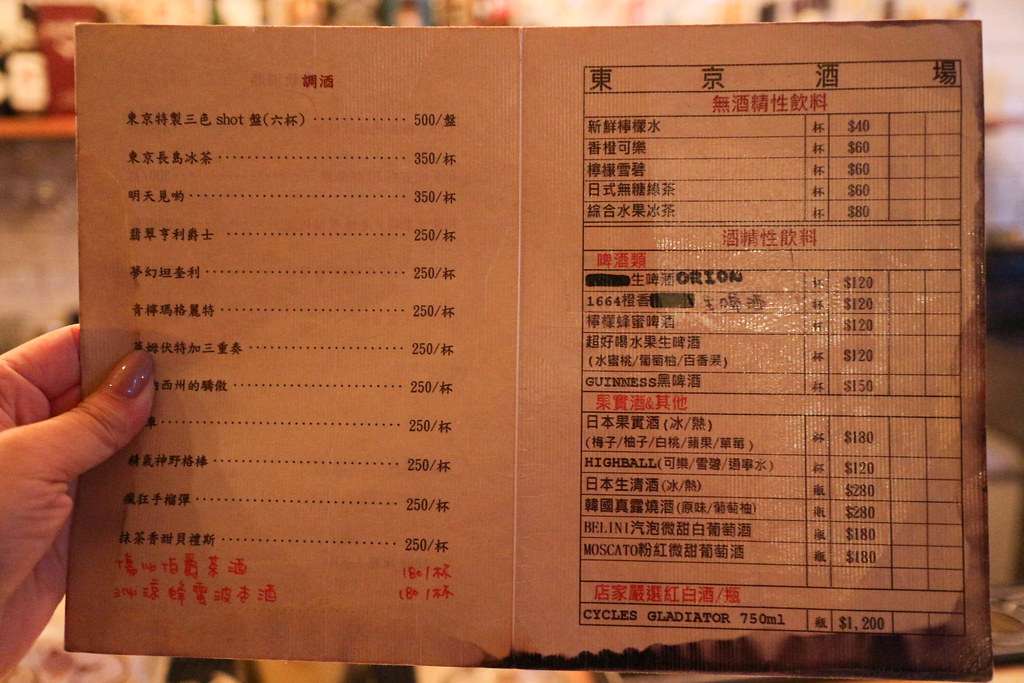 調酒
東京特製三色 shot 盤(六杯) 500/盤
東京長島冰茶 350/杯
明天見喲 350/杯
翡翠亨利爵士 250/杯
夢幻坦奎利 250/杯
青檸瑪格麗特 250/杯
姆伏特加三重奏 250/杯
西州的驕傲 250/杯
250/杯
精威神野格棒 250/杯
瘋狂手榴彈 250/杯
抹茶香甜貝禮斯 250/杯
伯爵茶酒 180/杯
蜂蜜波本酒 180/杯
東京酒場
無酒精性飲料
新鮮檸檬水 杯 $40
香橙可樂 杯 $60
檸檬雪碧 杯 $60
日式無糖綠茶 杯 $60
綜合水果冰茶 杯 $80
酒精性飲料
啤酒類
生啤酒ORION 杯 $120
1664橙香 生啤酒 杯 $120
檸檬蜂蜜啤酒 杯 $120
超好喝水果生啤酒
(水蜜桃/葡萄柚/百香果) 杯 $120
GUINNESS黑啤酒 杯 $150
果實酒&其他
日本果實酒(冰/熱)
(梅子/柚子/白桃/蘋果/草莓) 杯 $180
HIGHBALL(可樂/雪碧/通寧水) 杯 $120
日本生清酒(冰/熱) 瓶 $280
韓國真露燒酒(原味/葡萄柚) 瓶 $280
BELINI汽泡微甜白葡萄酒 瓶 $180
MOSCATO粉紅微甜葡萄酒 瓶 $180
店家嚴選紅白酒/瓶
CYCLES GLADIATOR 750ml 瓶 $1,200